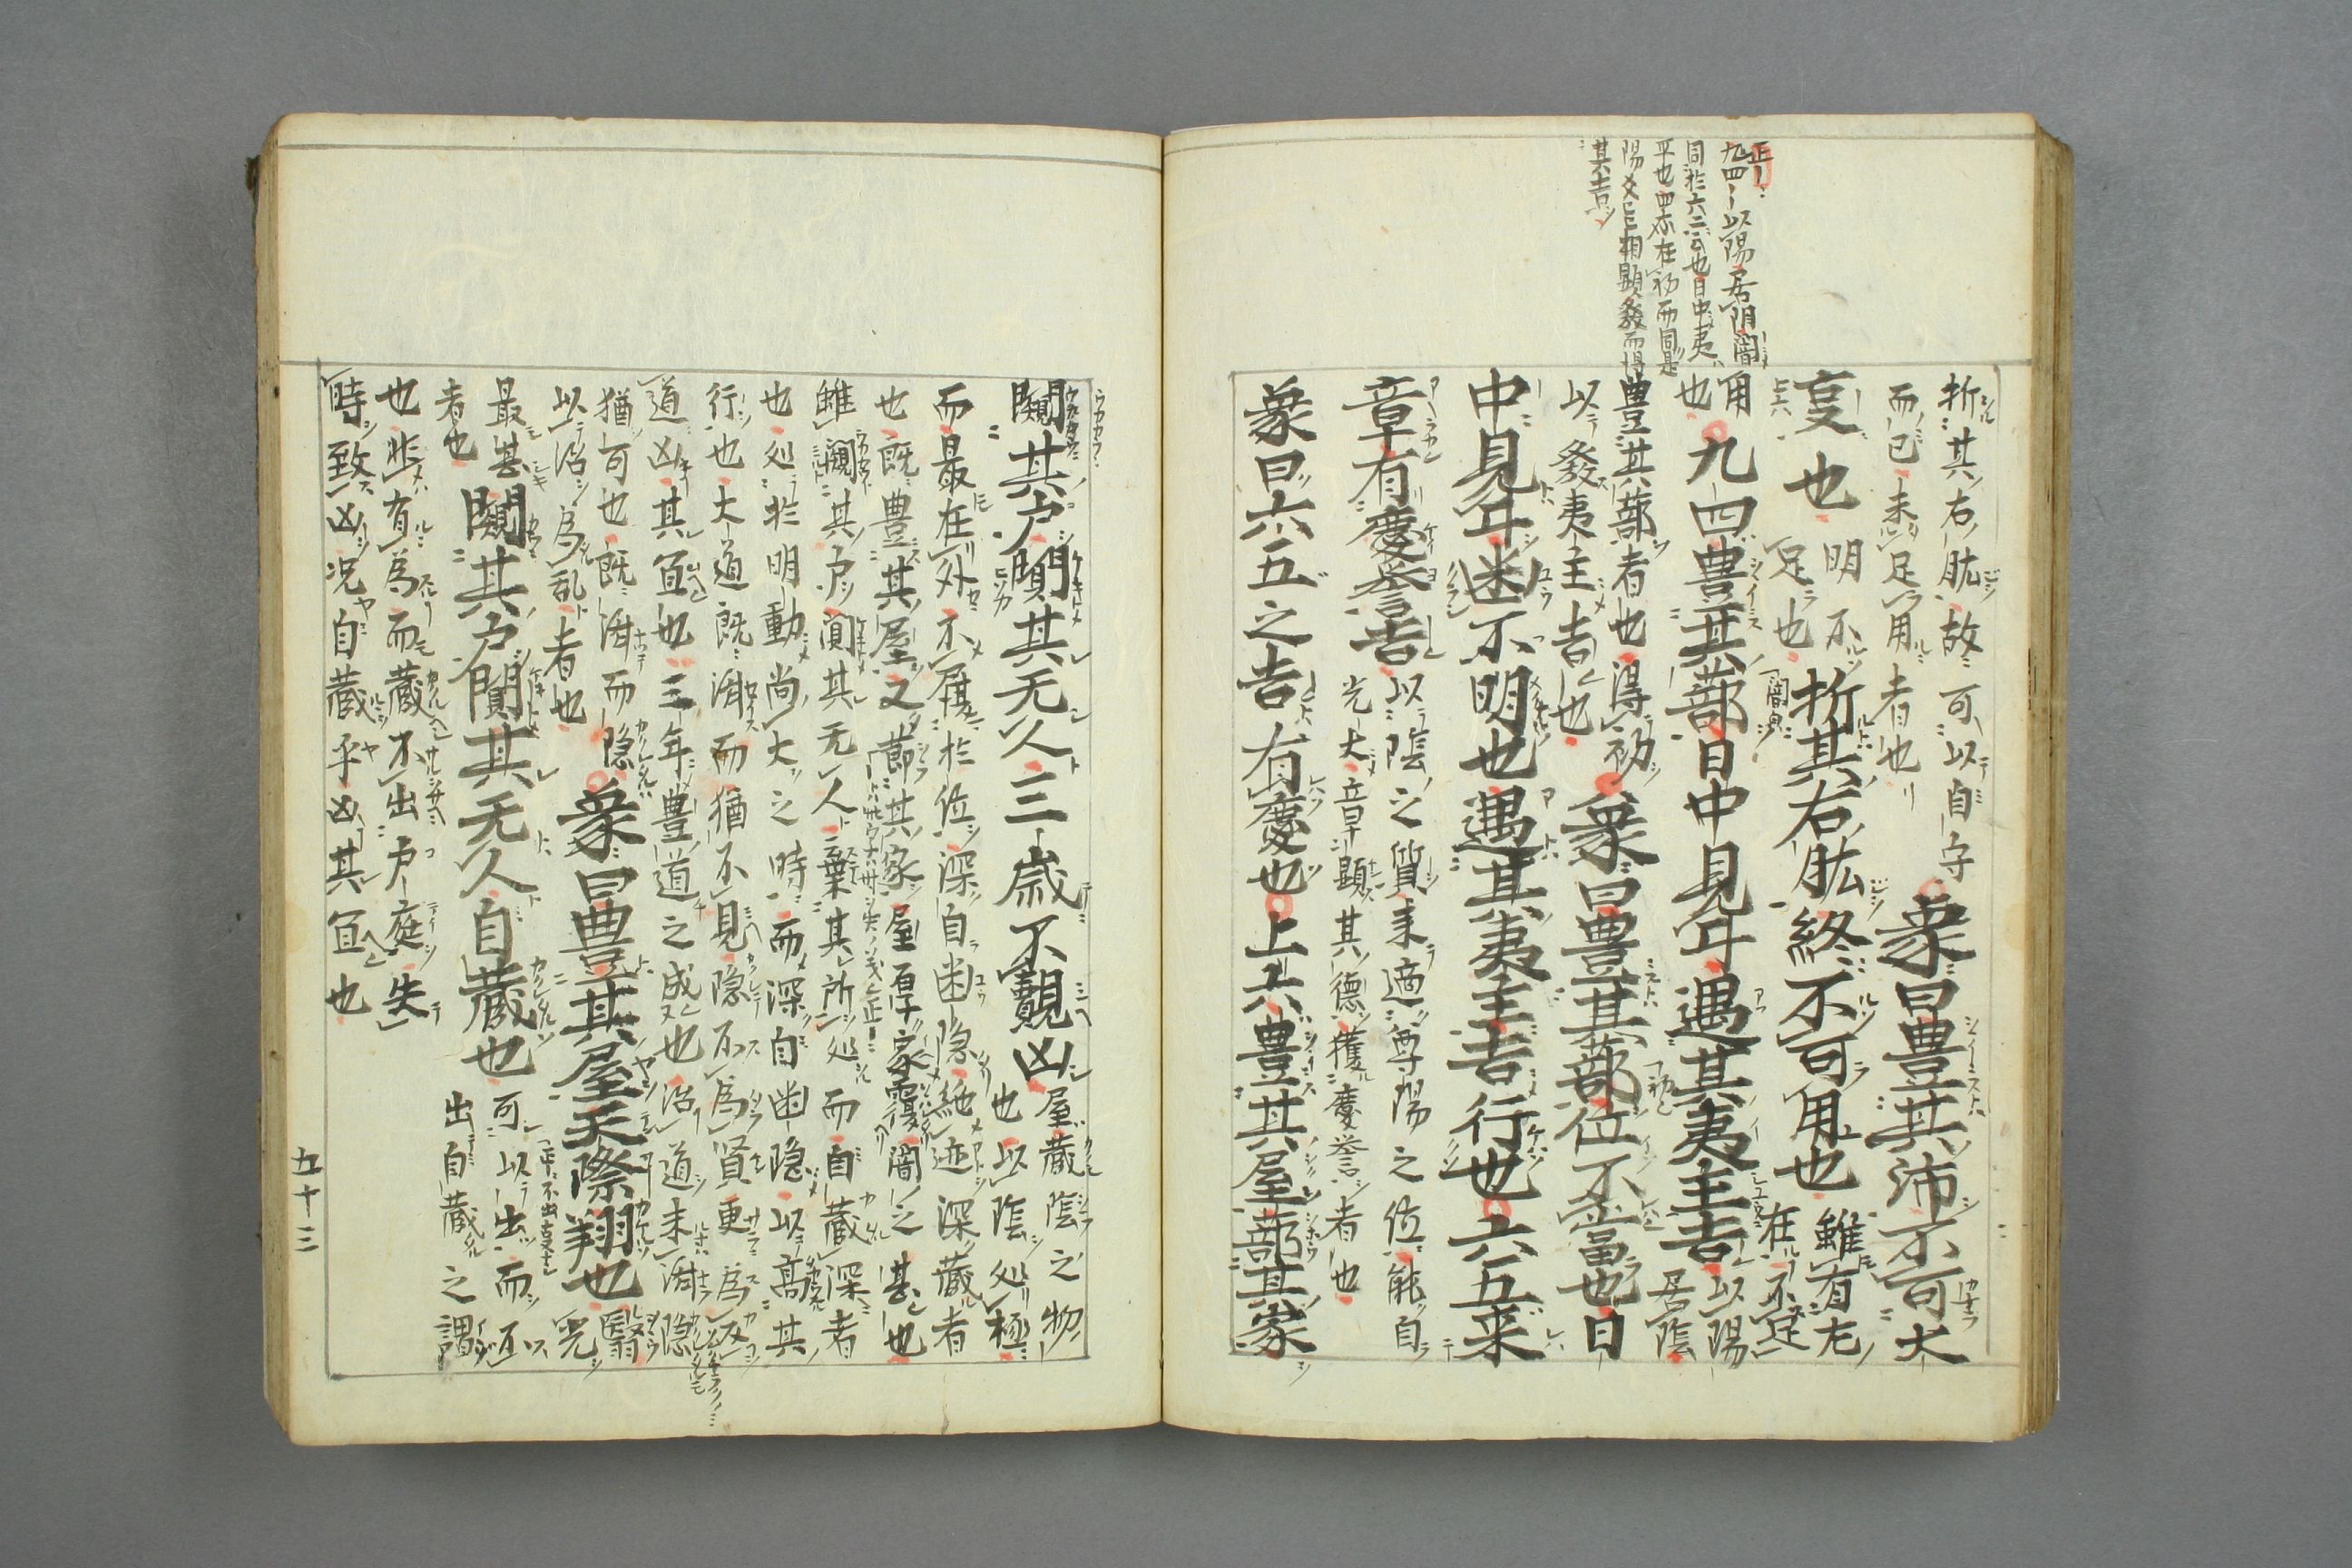 正—
九四—以陽居阴闇
同於六二云也日中夷
平也四亦在初而同是
陽爻能相顯發而得
其吉
折其右肱故可以自守
而已未足用者也
象曰豊其沛不可大
㕝也
明不
足也
折其右肱終不可用也
雖有左
在不足
用
也
九四豊其蔀日中見斗遇其夷主吉
以陽
居陰
豊其蔀者也得初
以發夷主吉也
象曰豊其蔀位不當也日
中見斗幽不明也遇其夷主吉行也六五来
章有慶誉吉
以陰之質来適尊陽之位能自
光大章顯其德獲慶誉者也
象曰六五之吉有慶也上六豊其屋蔀其家
闚其户闃其无人三歳不覿凶
屋蔵陰之物
也以陰処極
而最在外不履於位深自幽隠絶迹深蔵者
也既豊其屋又蔀其家屋厚家覆闇之甚也
雖闚其户闃其无人棄其所処而自蔵深者
也処於明動尚大之時而深自幽隠以髙其
行也大道既済而猶不見隠不為賢更為反
道凶其冝也三年豊道之成也治道未済隠
猶可也既済而隠
以治為乱者也
象曰豊其屋天際翔也
翳
光
最甚
者也
闚其户闃其无人自蔵也
可以出而不
出自蔵之謂
也非有為而蔵不出户庭失
時致凶况自蔵乎凶其冝也
五十三